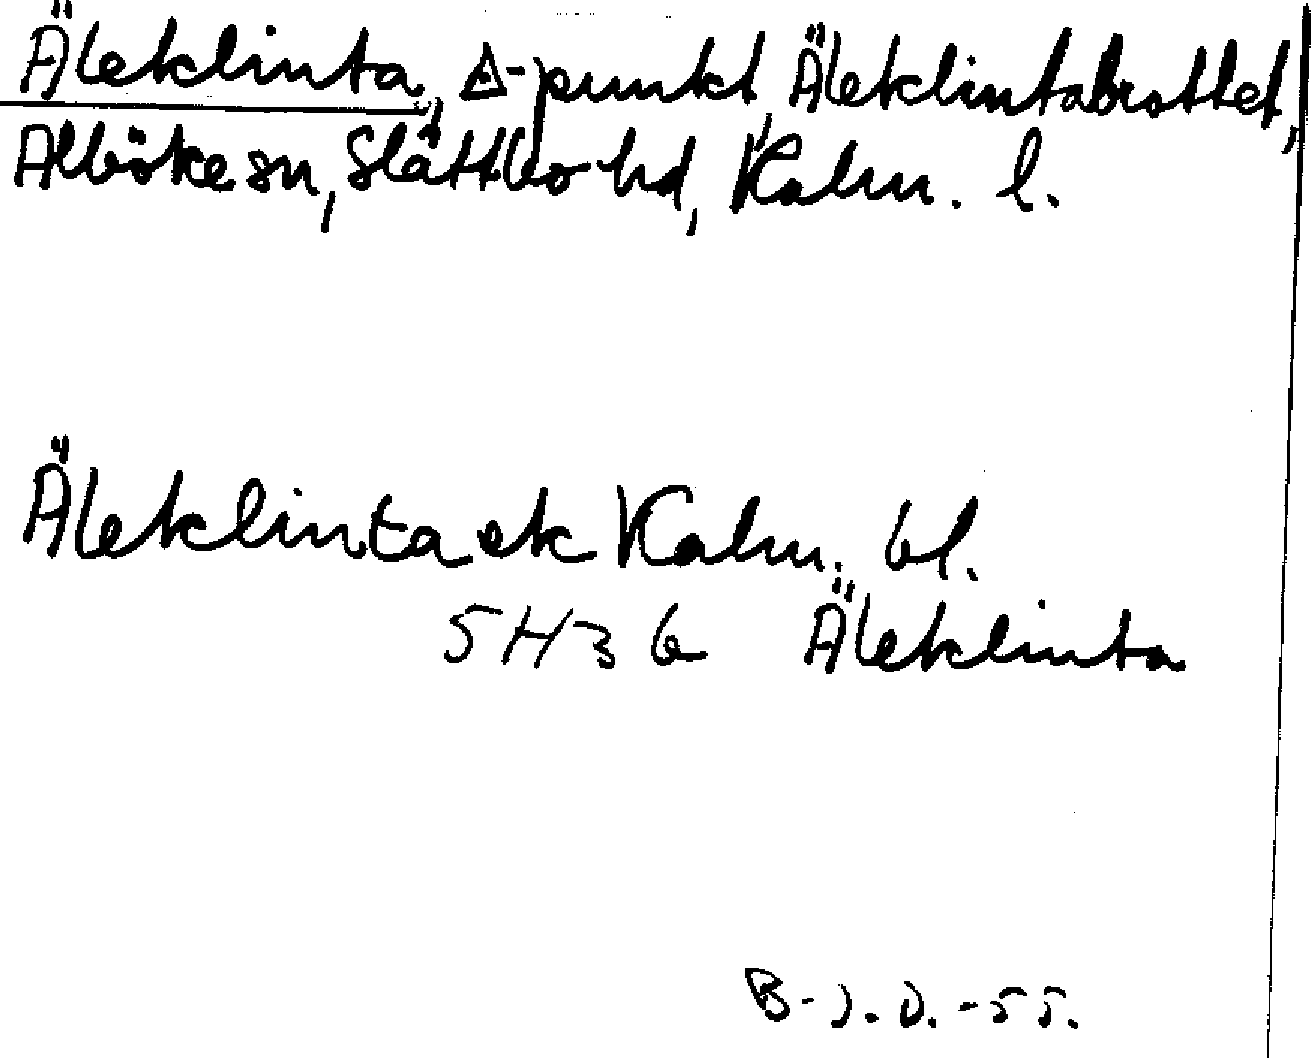 Äleklinta, Δ-punkt, Äleklintabrottet,
Alböke sn, Slättbo hd, Kalm. l.
Äleklinta ek Kalm. bl.
5H3b Äleklinta
B-J.D.-55.